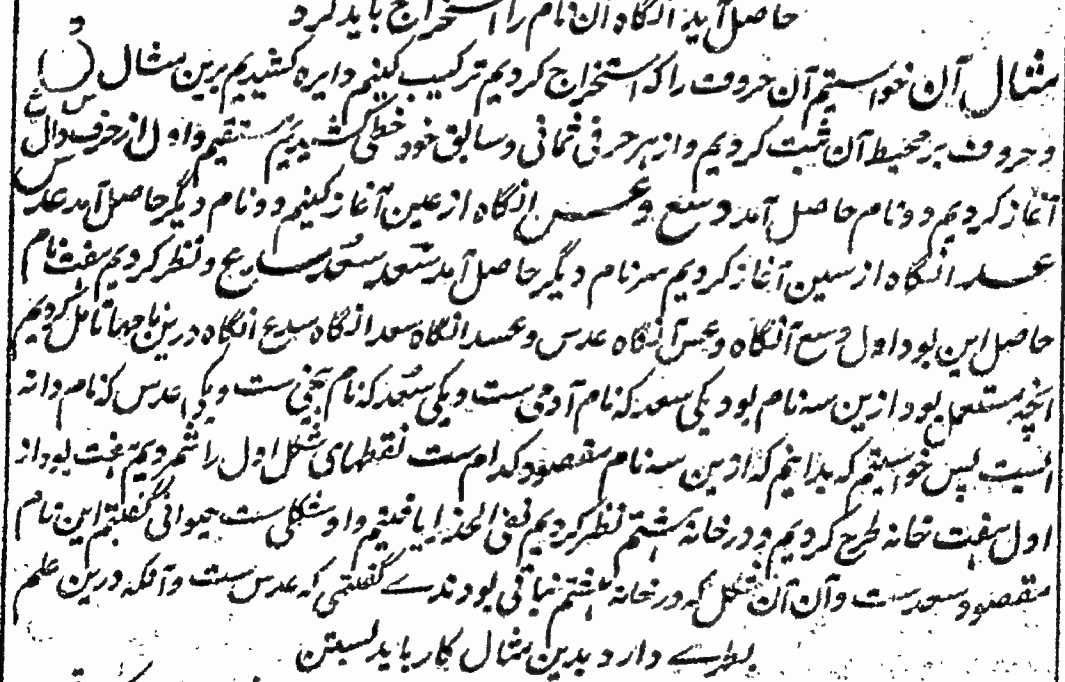 حاصل آید آنگاه آن نام را استخراج باید کرد
مثال آن خواستیم آن حروف را که استخراج کردیم ترکیب کنیم دایره کشیدیم برین مثال د ع س
و حروف بر محیط آن ثبت کردیم و از هر حرفی خطی کشیدیم مستقیم و اول از حرف دال
آغاز کردیم دو نام حاصل آمد دسع و دعس انگاه از عین آغاز کنیم دو نام دیگر حاصل آمد عدس
عسد انگاه از سین آغاز کردیم سه نام دیگر حاصل آمد سعد سعد سدع و نظر کردیم هفت نام
حاصل این بود اول دسع آنگاه دعس آنگاه عدس و عسد انگاه سعد انگاه سدع انگاه درین نامها تامل کردیم
انچه مستعمل بود ازین سه نام بود یکی سعد که نام آدمی ست و یکی سعد که نام بیخی ست و یکی عدس که نام دانه
ایست پس خواستیم که بدانیم که ازین سه نام مقصود کدام ست نقطهای شکل اول را شمردیم هفت بود از
اول هفت خانه طرح کردیم و در خانه هشتم نظر کردیم نقی الخد را یافتیم و او شکلی ست حیوانی گفتیم این نام
مقصود سعد ست و آن آن شکل که در خانه هشتم نباتی بودندے گفتمی که عدس ست و آنکه درین علم
بطرے دارد بدین مثال کار باید بستن